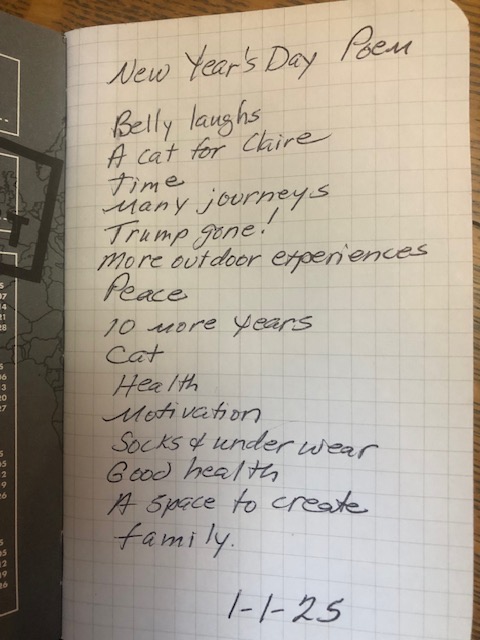 New Year's Day Poem
Belly laughs
A cat for Claire
Time
Many journeys
Trump gone!
More outdoor experiences
Peace
10 more years
Cat
Health
Motivation
Socks & under wear
Good health
A space to create
family.
1-1-25